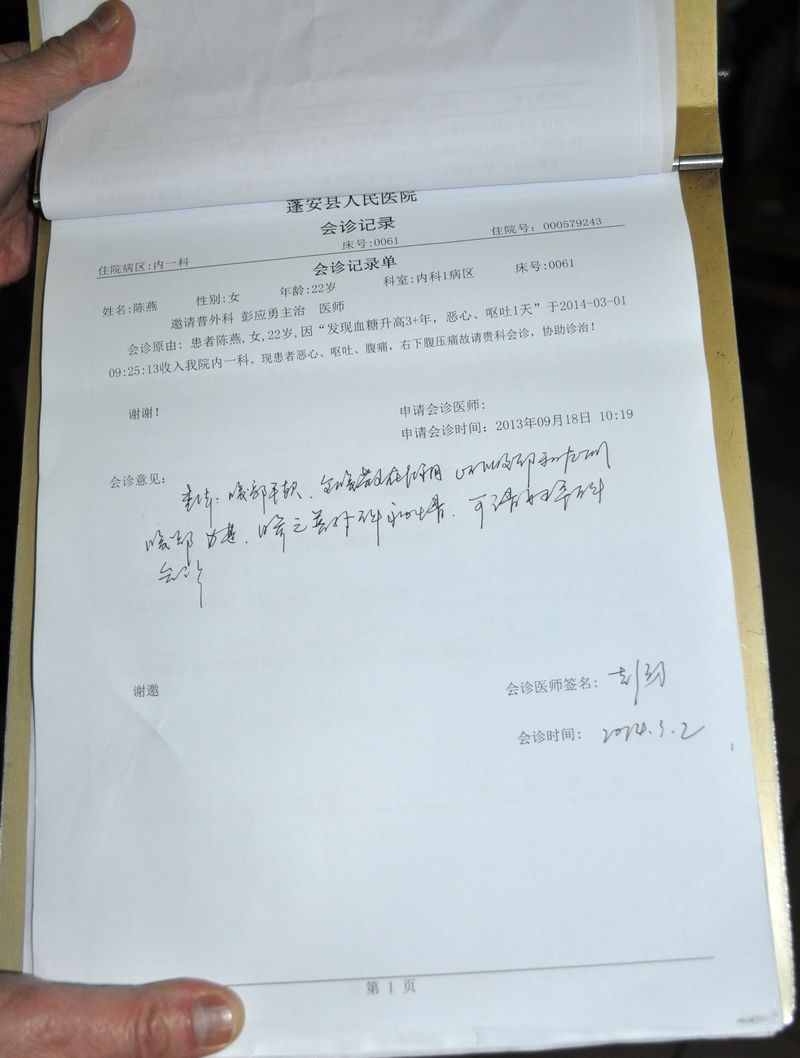 蓬安县人民医院
会诊记录
床号:0061
住院号: 000579243
住院病区:内一科
会诊记录单
姓名:陈燕 性别:女 年龄:22岁 科室:内科1病区 床号:0061
邀请普外科 彭应勇主治 医师
会诊原由: 患者陈燕,女,22岁,因“发现血糖升高3+年, 恶心、呕吐1天”于2014-03-01
09:25:13收入我院内一科。现患者恶心、呕吐、腹痛, 右下腹压痛故请贵科会诊, 协助诊治!
谢谢!
申请会诊医师:
申请会诊时间: 2013年09月18日 10:19
会诊意见:
查体: 腹部平软、全腹
腹部
会诊
谢邀
会诊医师签名:
会诊时间: 2014.3.2
第 1 页